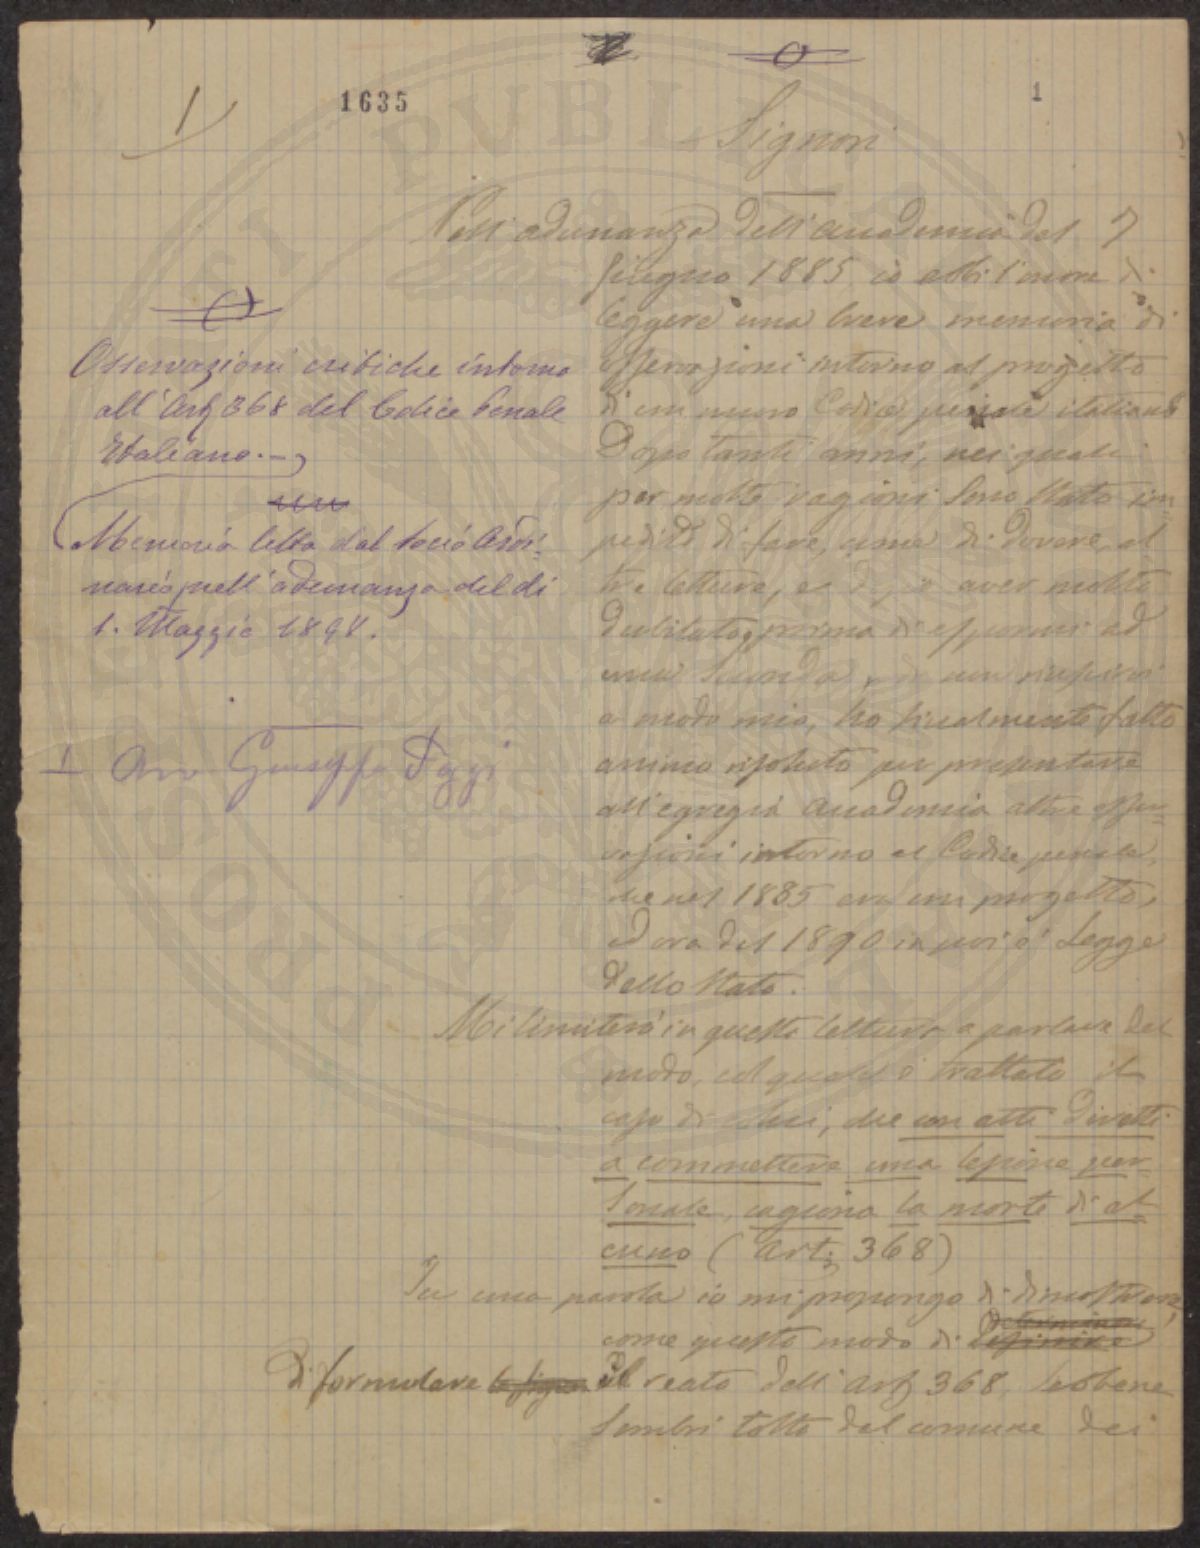 1635
1
1
Signori
Nell'adunanza dell'Accademia del 7
giugno 1885 io ebbi l'onore di
leggere una breve memoria di
osservazioni intorno al progetto
di un nuovo Codice penale italiano
Dopo tanti anni, nei quali
per molte ragioni sono stato im-
pedito di fare, come di dovere, al
tre letture, e dopo aver molto
dubitato prima di espormi ad
una seconda,
a modo mio, ho finalmente fatto
animo risoluto per presentare
all'egregia Accademia altre osser-
vazioni intorno al Codice penale,
che nel 1885 era un progetto,
ed ora dal 1890 in poi è Legge
dello Stato.
Mi limiterò in questa lettura a parlare del
modo, col quale è trattato il
caso di colui, che con atti diretti
a commettere una lesione per-
sonale, cagiona la morte di al-
cuno (Art. 368)
In una parola io mi propongo di dimostrare,
come questo modo di
di formulare il reato dell'Art 368, sebbene
sembri tolto dal comune dei
Osservazioni critiche intorno
all'Art 368 del Codice Penale
Italiano.-
Memoria letta dal socio Ordi-
nario nell'adunanza del dì
1. Maggio 1898.
1 Avv Giuseppe Oggi
PROSIT PUBLICA